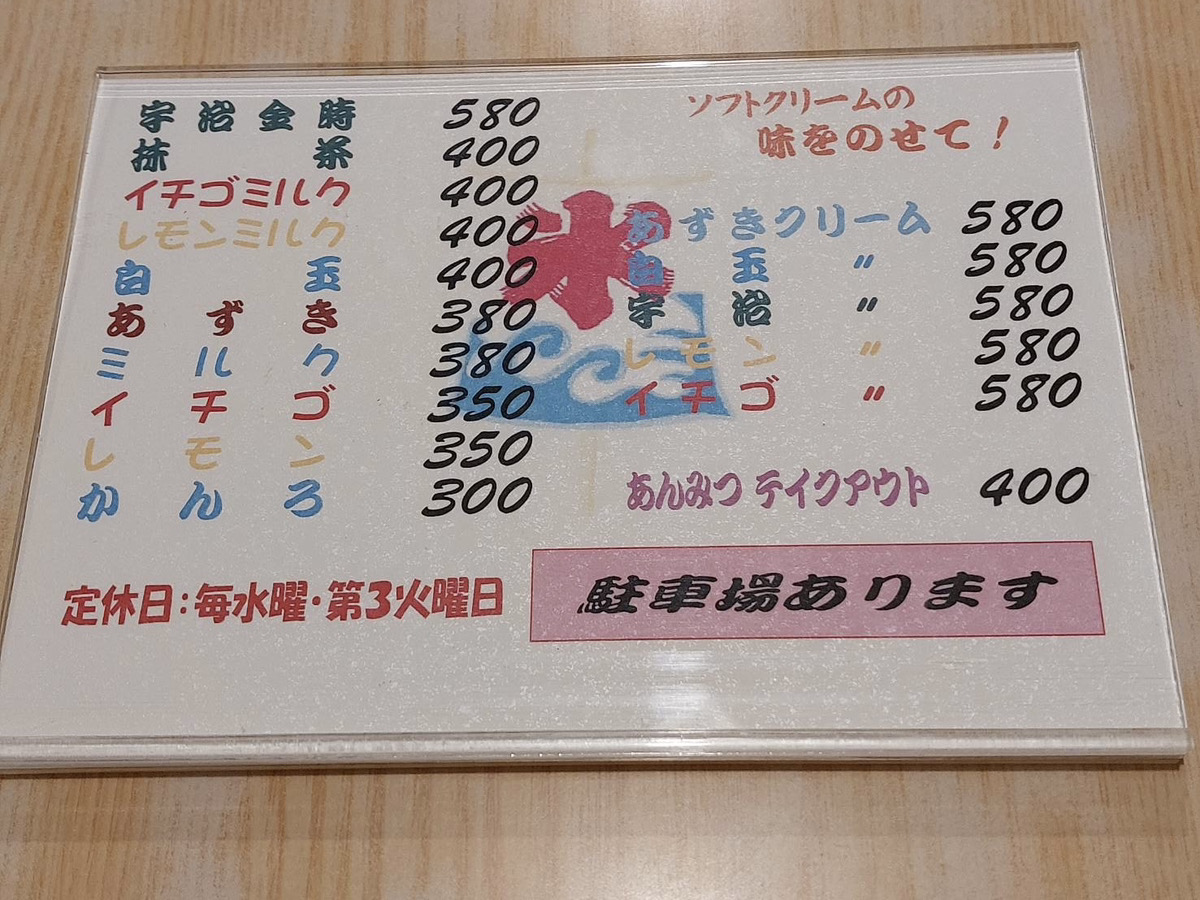 宇治金時 580
抹茶 400
イチゴミルク 400
レモンミルク 400
白玉 400
あずき 380
ミルク 380
イチゴ 350
レモン 350
かんろ 300
氷
ソフトクリームの
味をのせて！
あずきクリーム 580
白玉 〃 580
宇治 〃 580
レモン 〃 580
イチゴ 〃 580
あんみつ テイクアウト 400
定休日：毎水曜・第3火曜日
駐車場あります